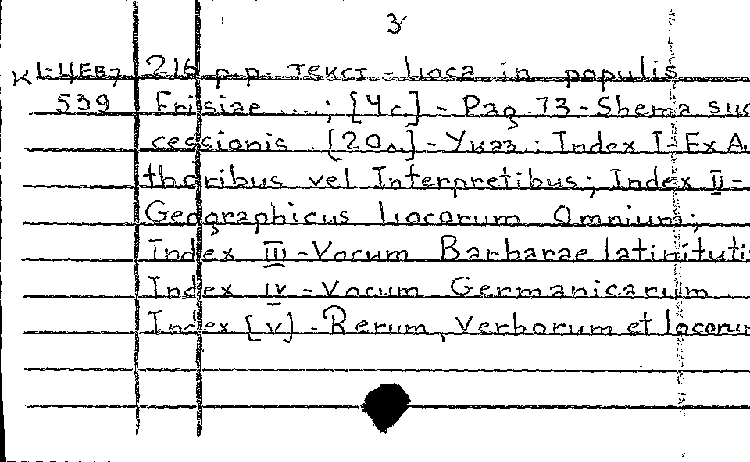 3
КІ-ЦЕВ7 216 p.p. текст - Loca in populis
539 Frisiae ...; [4c.] - Pag 73 - Shema suc
cessionis [20л] - Указ: Index I - Ex Au
thoribus vel Interpretibus; Index II -
Geographicus Locorum Omnium;
Index III - Vocum Barbarae latinituti
Index IV - Vocum Germanicarum
Index [V] - Rerum, Verborum et locorum